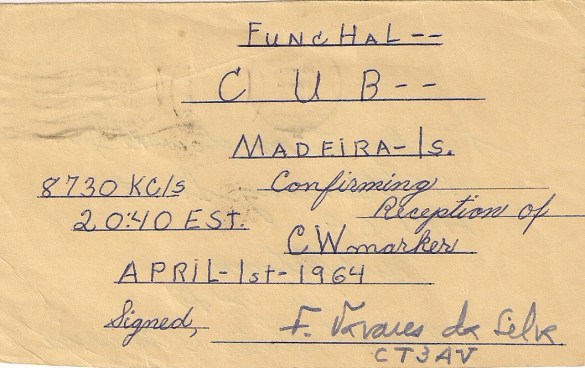 FUNCHAL--
C U B--
MADEIRA-Is.
8730 KC/s Confirming
20:40 EST. Reception of
CW marker
APRIL-1st-1964
Signed, F. Tavares da Silva
CT3AV